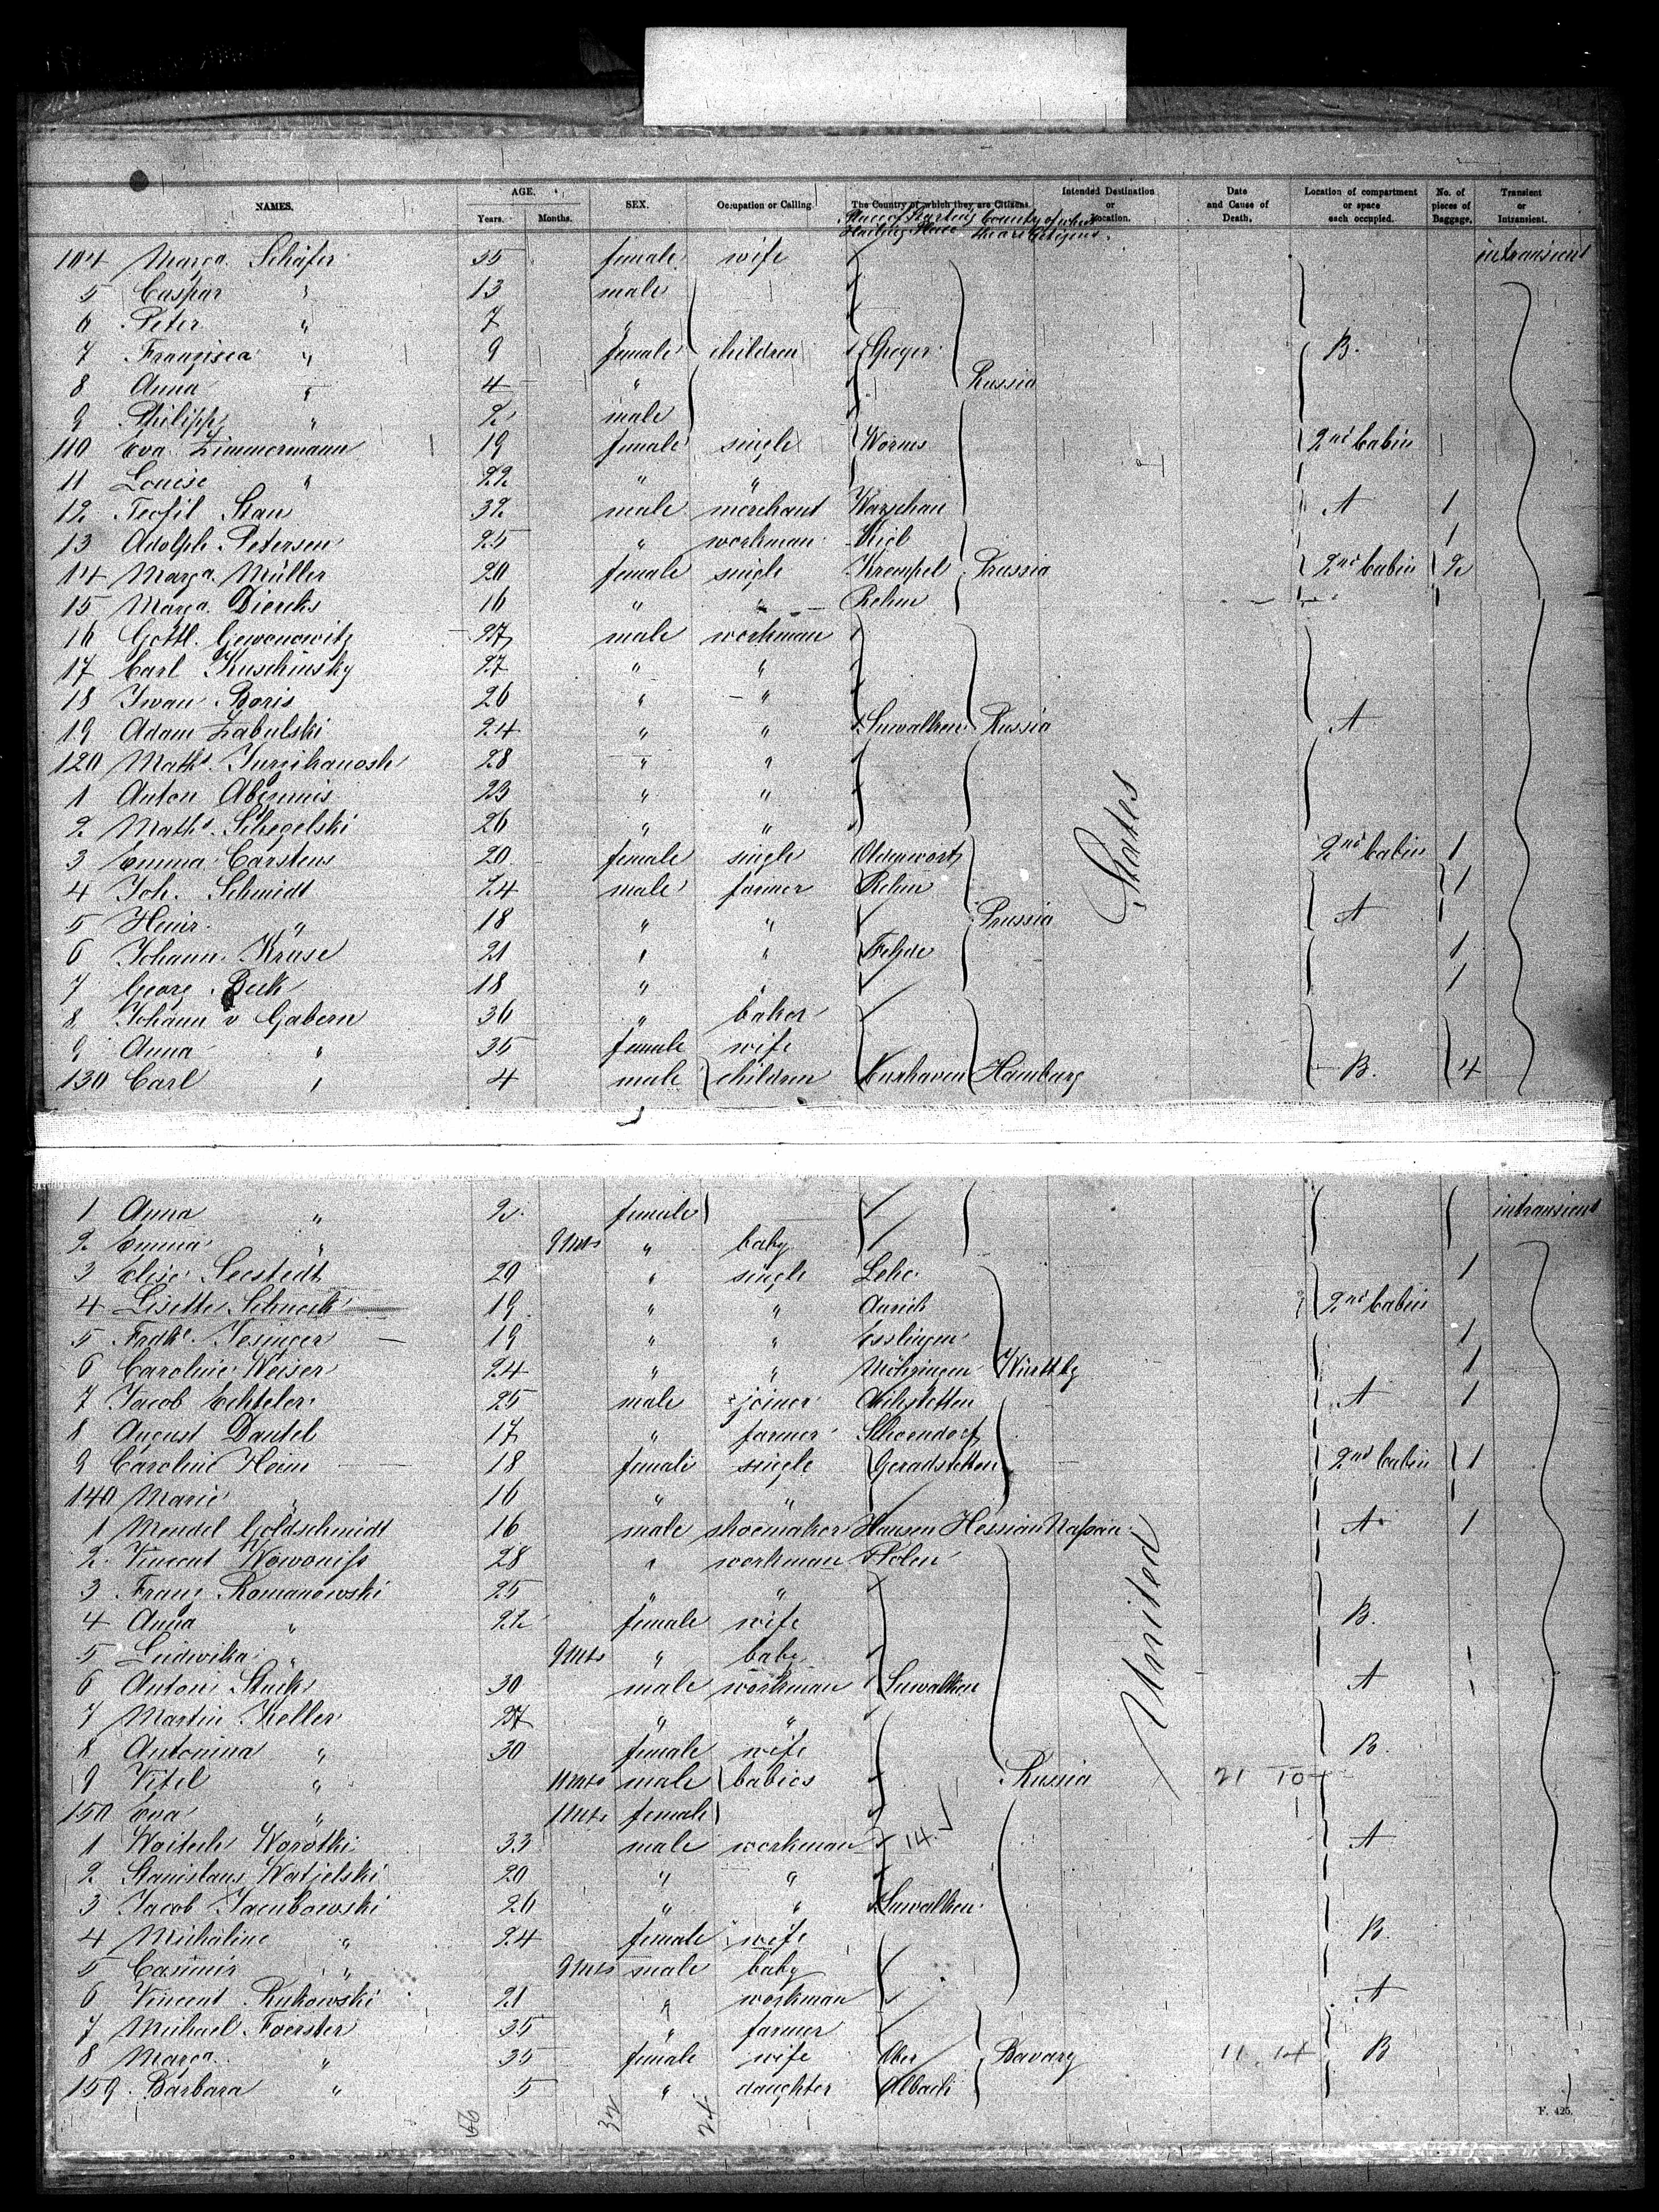 NAMES. AGE. Years. Months. SEX. Occupation or Calling. The Country of which they are Citizens. Intended Destination or Location. Date and Cause of Death. Location of compartment or space each occupied. No. of pieces of Baggage. Transient or Intransient.
Place of Starting Country of which
104 Marga. Schäfer 35 female wife intransient
5 Caspar " 13 male
6 Peter " 7 "
7 Franzisca " 9 female children Speyer B.
8 Anna " 4 " Russia
9 Philipp " 2 male
110 Eva Zimmermann 19 female single Worms 2nd Cabin
11 Louise " 22 " "
12 Teofil Stan 32 male merchant Warschau A 1
13 Adolph Petersen 25 " workman Kiel 1
14 Marga. Müller 20 female single Krempel Prussia 2nd Cabin 2
15 Marga. Diercks 16 " " Rehm
16 Gottl. 27 male workman
17 Carl Kuschinsky 27 " "
18 Iwan Boris 26 " "
19 Adam Zabulski 24 " " Suwalken Russia A
120 Maths. 28 " "
1 Anton 23 " "
2 Maths. 26 " "
3 Emma Carstens 20 female single Oldenwort 2nd Cabin 1
4 Joh. Schmidt 24 male farmer Rehm 1
5 Heinr. " 18 " " Prussia A
6 Johann Kruse 21 " " 1
7 Georg Beck 18 " " 1
8 Johann v Gabern 36 " baker
9 Anna " 35 female wife
130 Carl " 4 male children Cuxhaven Hamburg B. 4
States
1 Anna " 2 female intransient
2 Emma " 9 mts " baby
3 Elise Seestedt 20 " single Lehe 1
4 Lisette Schuck 19 " " Aurich 2nd Cabin
5 Frdke. Jesinger 19 " " Esslingen 1
6 Caroline Weiser 24 " " Möhringen Württbg 1
7 Jacob Echteler 25 male joiner A 1
8 August Dautel 17 " farmer Schorndorf
9 Caroline Heim 18 female single Geradstetten 2nd Cabin 1
140 Marie " 16 " "
1 Mendel Goldschmidt 16 male shoemaker Hausen Hessian Nassau A 1
2 Vincent 28 " workman Polen
3 Franz Romanowski 25 " "
4 Anna " 22 female wife B.
5 Ludwika " 9 mts " baby
6 Anton 30 male workman Suwalken A
7 Martin Keller 27 " "
8 Antonina " 30 female wife B.
9 Vitel " 11 mts male babies Russia 21 10
150 Eva " 1 mts female
1 Woitech Worotki 33 male workman 14 A
2 Stanislaus Watjelski 20 " "
3 Jacob Jacubowski 26 " " Suwalken
4 Michaline " 24 female wife B.
5 Casimir " 9 mts male baby
6 Vincent Rukowski 21 " workman A
7 Michael Foerster 35 " farmer
8 Marga. " 35 female wife Ober Bavary 11 14 B
159 Barbara " 5 " daughter Albach
United
32
24
F. 425.